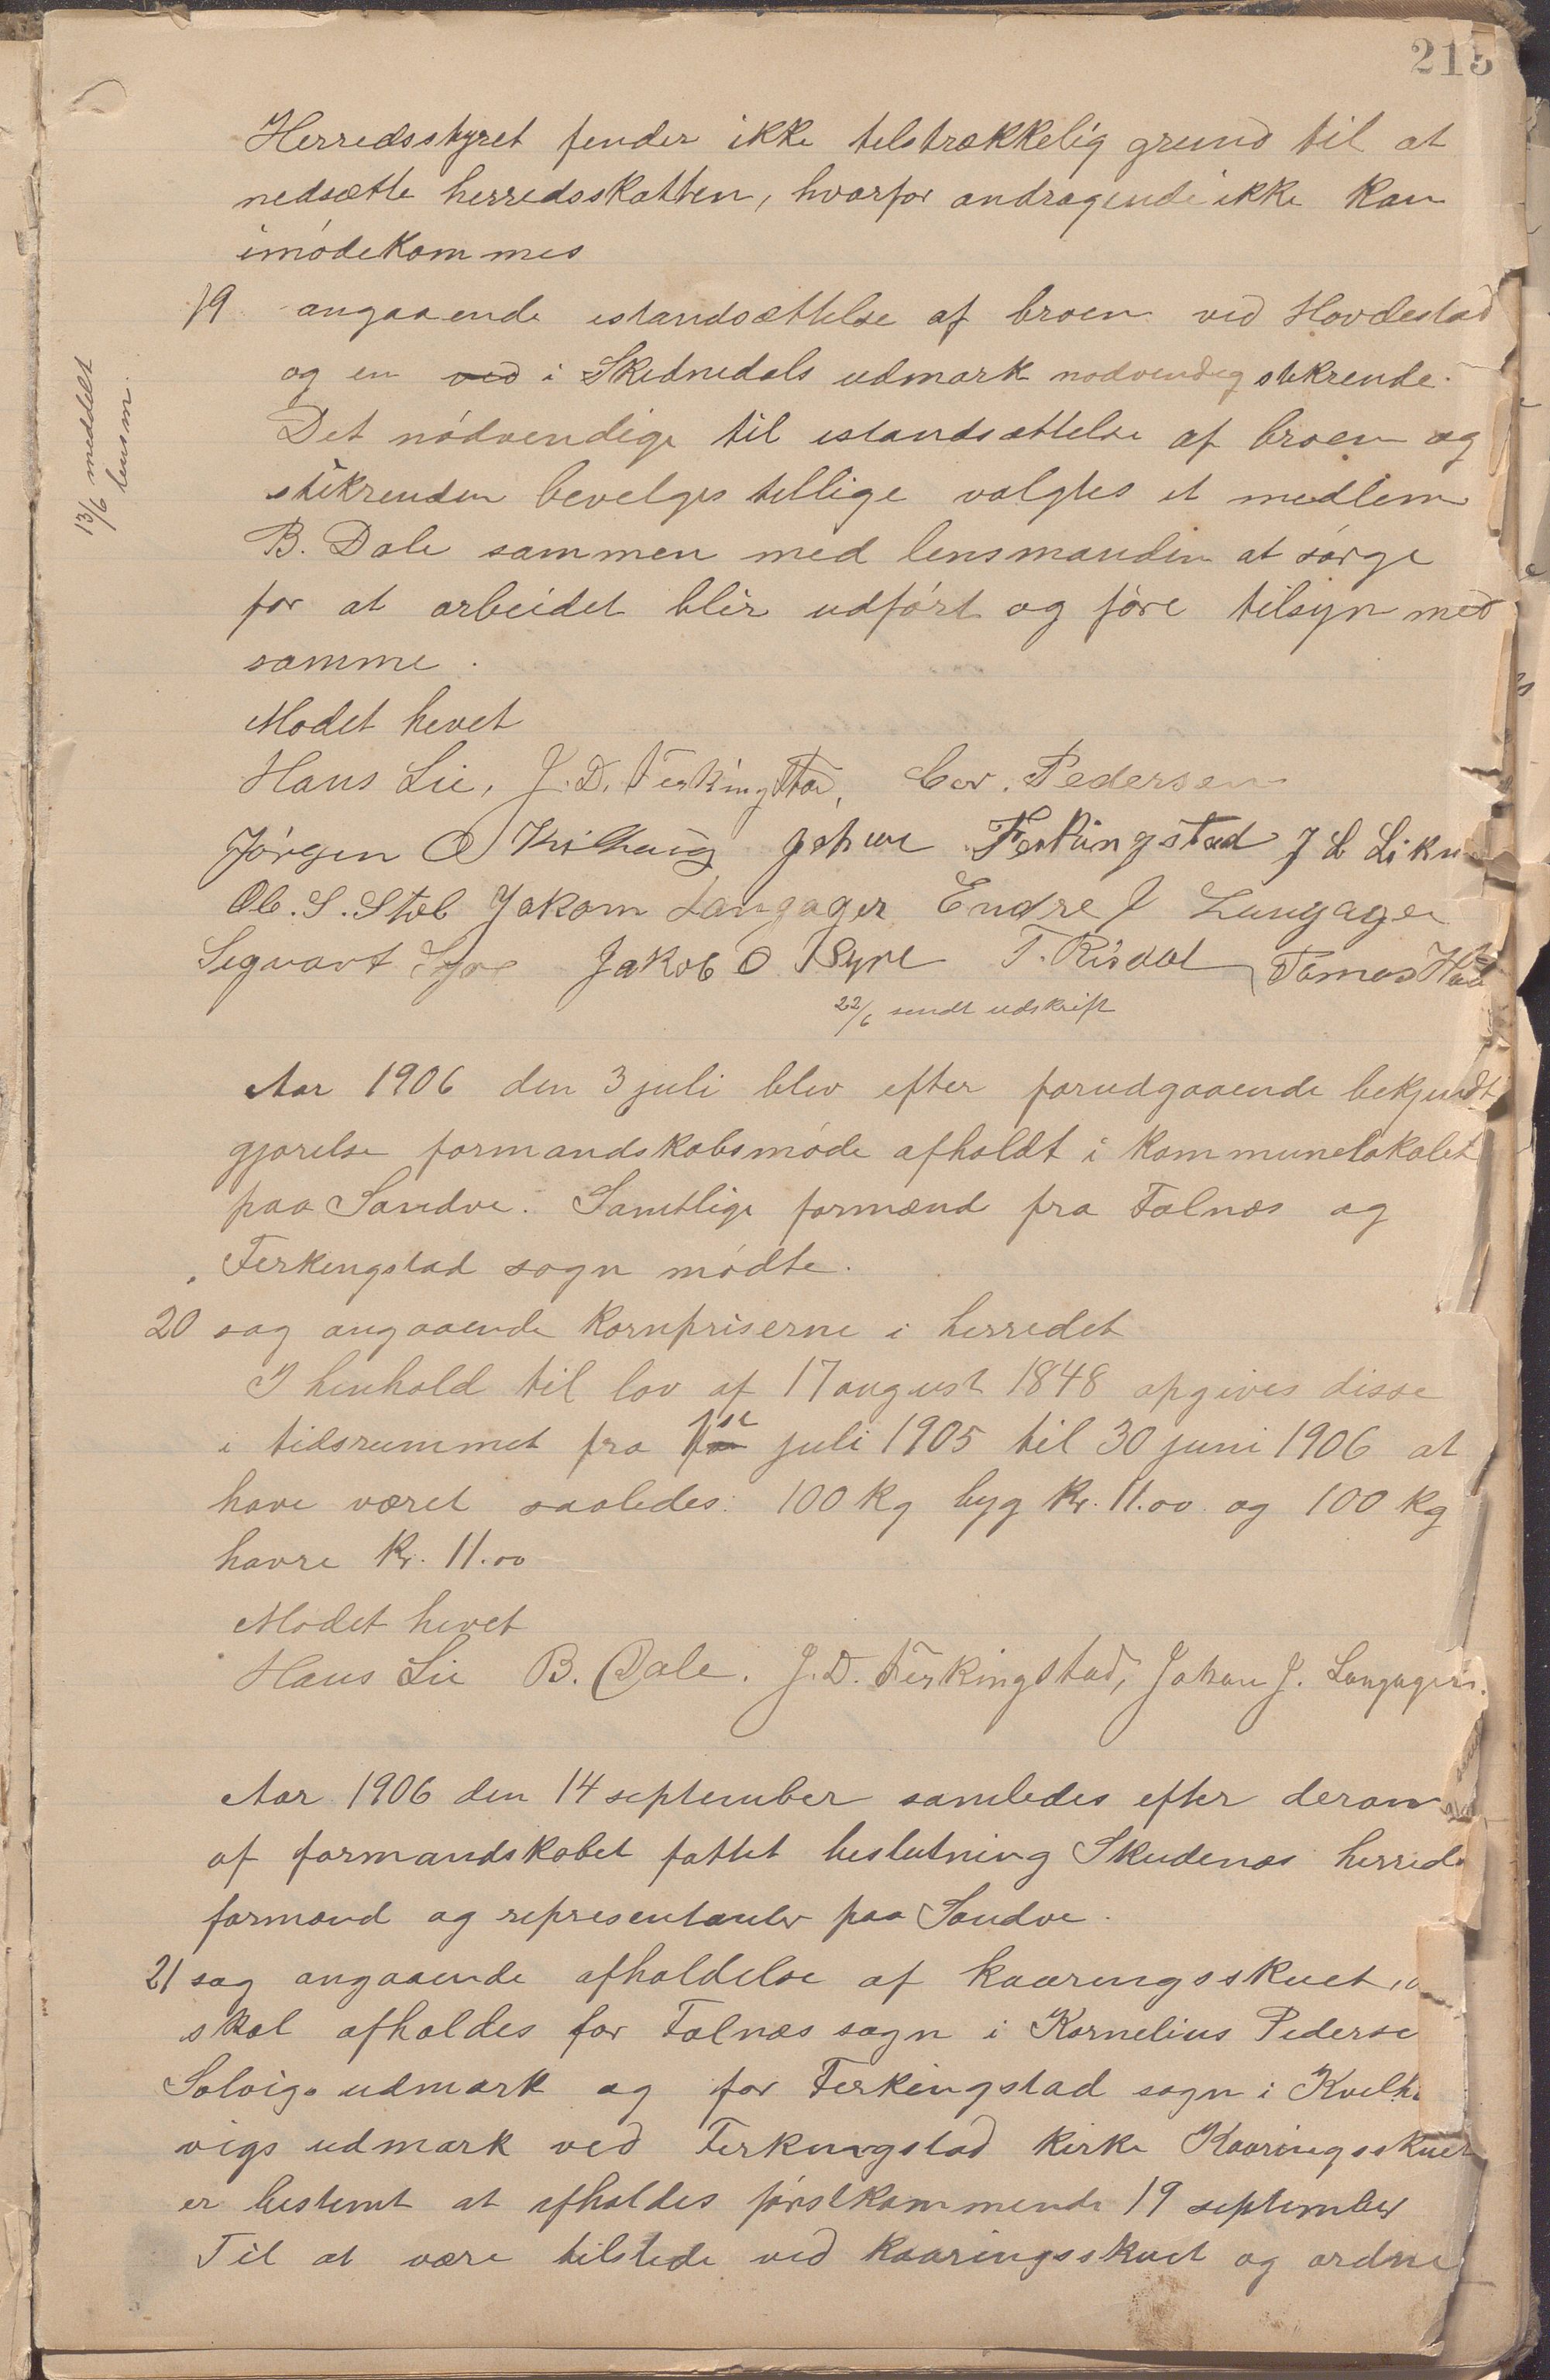 215
Herredsstyret finder ikke tilstrækkelig grund til at
nedsætte herredsskatten, hvorfor andragende ikke kan
imødekommes
19 angaaende istandsættelse af broen ved Hovdestad
og en ved i Skednedals udmark nødvendig stikrende.
Det nødvendige til istandsættelse af broen og
stikrenden bevilges tillige valgtes et medlem
B. Dale sammen med lensmanden at sørge
for at arbeidet blir udført og føre tilsyn med
samme.
13/6 meddelt
lensm.
Mødet hevet
Hans Lie, J. D. Ferkingstad, Cor. Pedersen
Jørgen O Kvilhaug Johan Ferkingstad J L Likn
Ol. S. Stol Jakom Langager Endre J Langager
Sigvart Syre Jakob O. Syre T. Risdal Tomas
22/6 sendt udskrift
Aar 1906 den 3 juli blev efter forudgaaende bekjendt
gjørelse formandskabsmøde afholdt i kommunelokalet
paa Sandve. Samtlige formænd fra Falnæs og
Ferkingstad sogn mødte.
20 sag angaaende kornpriserne i herredet
I henhold til lov af 17 august 1848 opgives disse
i tidsrummet fra 1ste juli 1905 til 30 juni 1906 at
have været saaledes: 100 kg byg kr. 11.00 og 100 kg
havre kr. 11.00
Mødet hevet
Hans Lie B. Dale. J. D. Ferkingstad, Johan J. Langager.
Aar 1906 den 14 september samledes efter derom
af formandskabet fattet beslutning Skudenæs herreds
formænd og representanter paa Sandve.
21 sag angaaende afholdelse af kaaringsskuet,
skal afholdes for Falnæs sogn i Kornelius Pederse
Solvigs udmark og for Ferkingstad sogn i Kvilh
vigs udmark ved Ferkingstad kirke Kaaringsskuet
er bestemt at afholdes førstkommende 19 september
Til at være tilstede ved kaaringsskuet og ordne